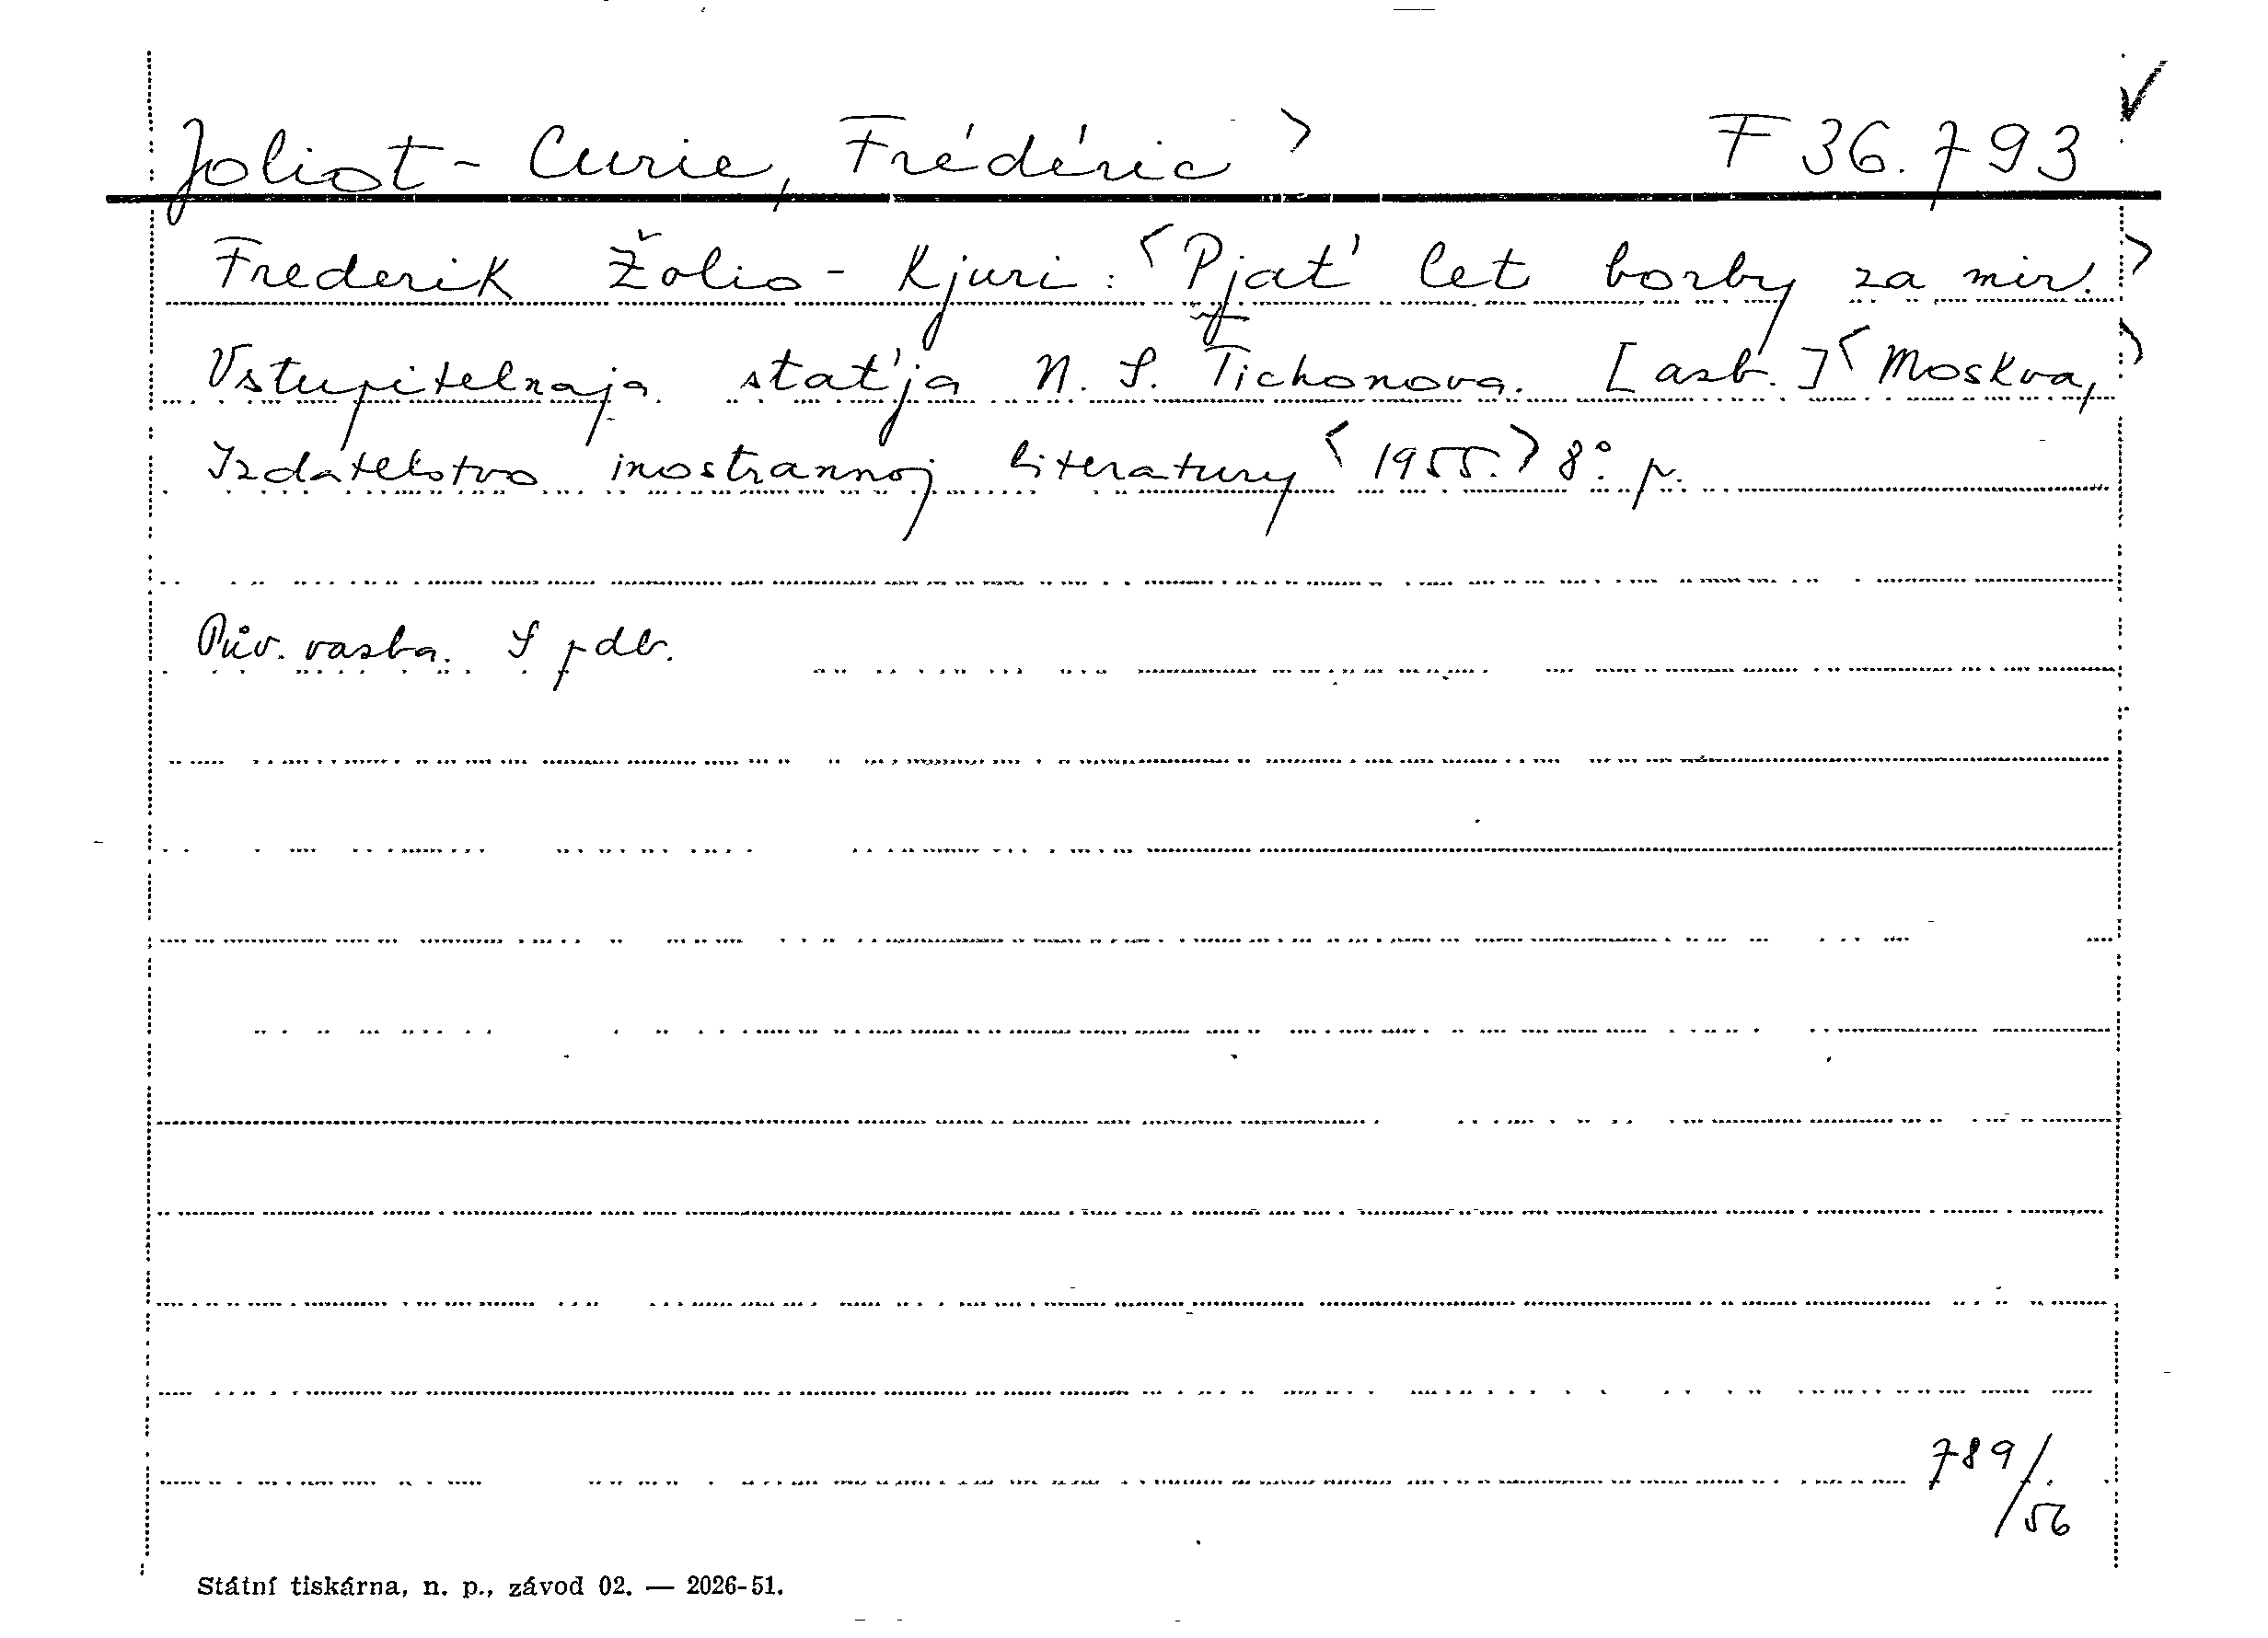 Joliot-Curie, Frédéric > F 36.793 ✓
Frederik Žolio-Kjuri: <Pjat' let borby za mir.>
Vstupitelnaja stat'ja N. S. Tichonova. [azb.] <Moskva,>
Izdatelstvo inostrannoj literatury <1955.> 8°. p.
Pův. vazba. S pdb.
789/56
Státní tiskárna, n. p., závod 02. — 2026-51.